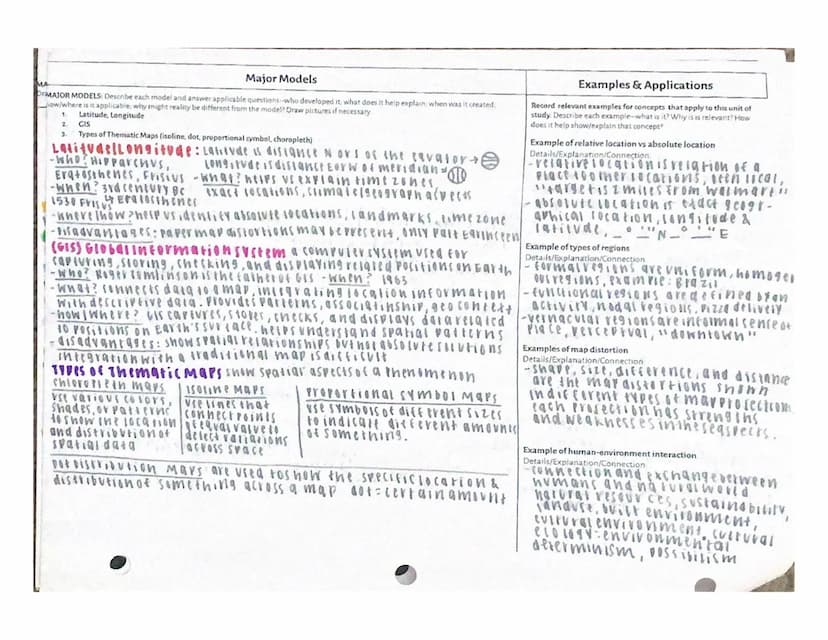 Major Models
MAJOR MODELS: Describe each model and answer applicable questions--who developed it; what does it help explain; when was it created;
how/where is it applicable; why might reality be different from the model? Draw pictures if necessary
1. Latitude, Longitude
2. GIS
3. Types of Thematic Maps (isoline, dot, proportional symbol, choropleth)
Latitude/Longitude: Latitude is distance N or S of the equator →
- Who? Hipparchus, Longitude is distance E or W of meridian =
Eratosthenes, Frisius - What? helps us explain time zones
- When? 3rd century BC exact locations, climate (geograph aspects
1530 Frius ↳ Eratosthenes
- Where/how? help us identify absolute locations, landmarks, time zone
- Disadvantages: Paper map distortions may be present, only Part Earth seen
(GIS) Global Information System a computer system used for
capturing, storing, checking, and displaying related positions on Earth
- Who? Roger Tomlinson is the father of GIS - When? 1963
- What? connects data to a map, integrating location information
with descriptive data. Provides patterns, associationship, geo context
- how/where? GIS captures, stores, checks, and displays data related
to positions on Earth's surface. helps understand spatial patterns
- disadvantages: show spatial relationships but not absolute solutions
integration with a traditional map is difficult
Types of Thematic Maps show spatial aspects of a phenomenon
Chloropleth maps
use various colors,
shades, or patterns
to show the location
and distribution of
spatial data
Isoline maps
use lines that
connect points
of equal value to
detect variations
across space
Proportional symbol maps
use symbols of different sizes
to indicate different amounts
of something.
Dot distribution maps are used to show the specific location &
distribution of something across a map dot = certain amount
Examples & Applications
Record relevant examples for concepts that apply to this unit of
study. Describe each example--what is it? Why is is relevant? How
does it help show/explain that concept?
Example of relative location vs absolute location
Details/Explanation/Connection
- relative location is relation of a
place to other locations, been local,
"target is 2 miles from walmart"
- absolute location is exact geogr-
aphical location, longitude &
latitude, _° _' _" N _° _' _" E
Example of types of regions
Details/Explanation/Connection
- formal regions are uniform, homogen
ous regions, example: Brazil
- functional regions are defined by an
activity, nodal regions, pizza delivery
- vernacular regions are informal sense of
place, perceptual, "downtown"
Examples of map distortion
Details/Explanation/Connection
- shape, size, difference, and distance
are the map distortions shown
in different types of map projections
each projection has strengths
and weaknesses in these aspects.
Example of human-environment interaction
Details/Explanation/Connection
- connection and exchange between
humans and natural world
natural resources, sustainbility,
landuse, built environment,
cultural environment, cultural
ecology: environmental
determinism, possibilism